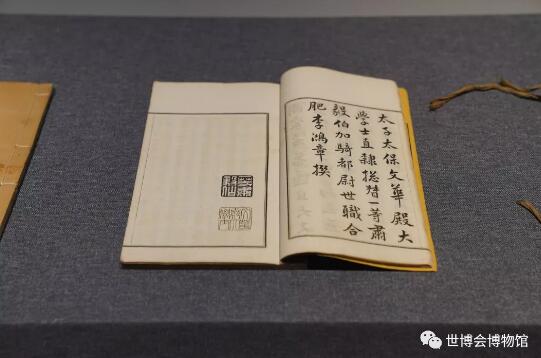 太子太保文華殿大
學士直隸総督一等肅
毅伯加騎都尉世職合
肥李鴻章撰
世博会博物馆